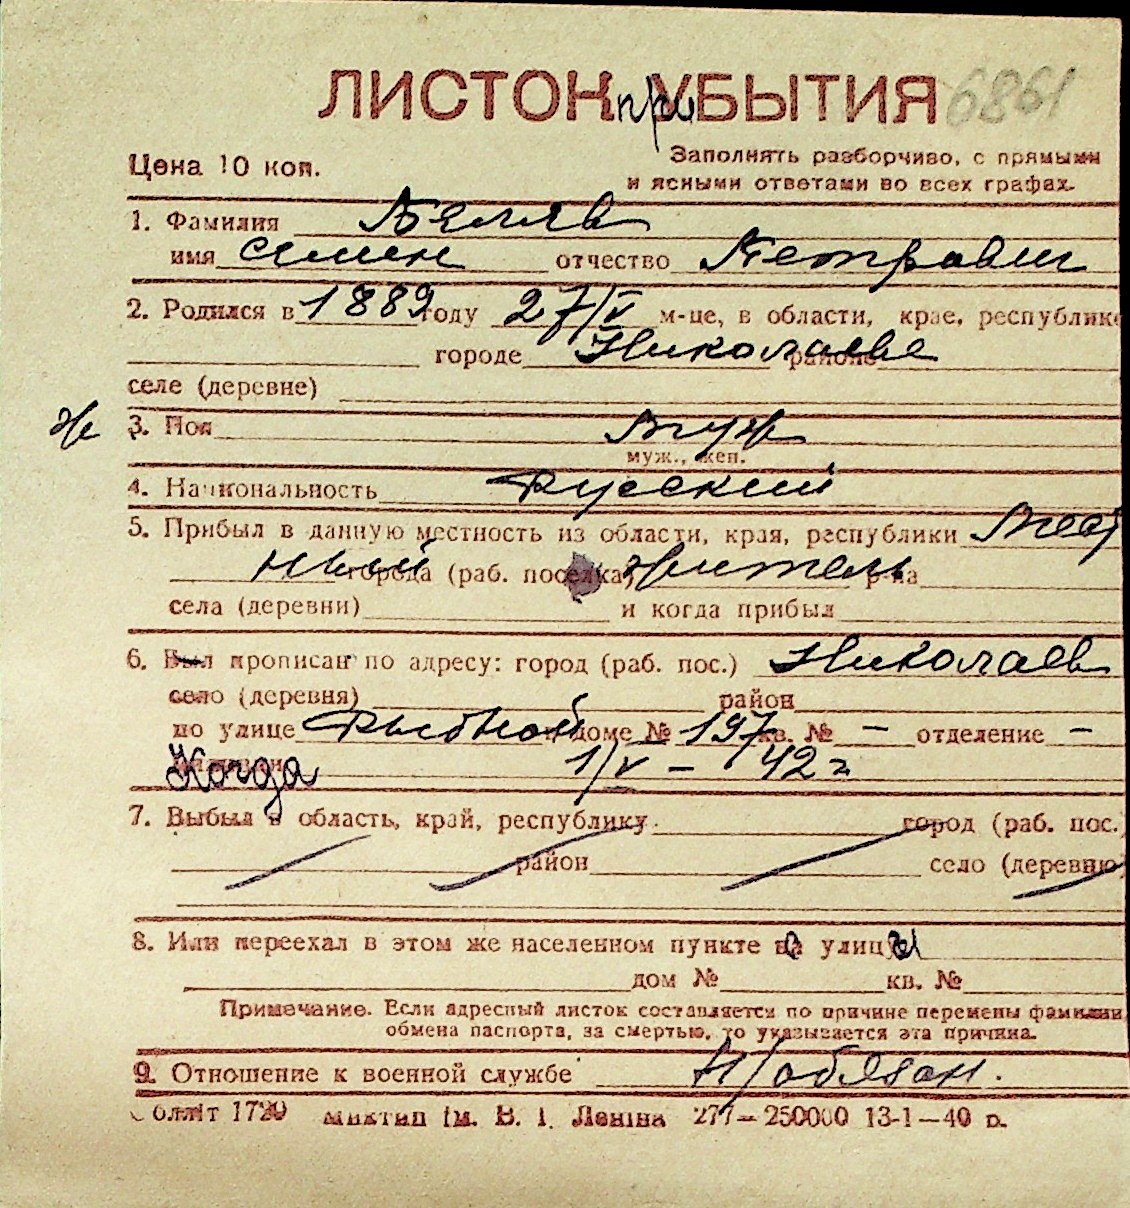 ЛИСТОК при УБЫТИЯ 6861
Цена 10 коп. Заполнять разборчиво, с прямыми
и ясными ответами во всех графах.
1. Фамилия Беляев
имя Семен отчество Петрович
2. Родился в 1889 году 27/V м-це, в области, крае, республике
городе Николаеве районе
селе (деревне)
3. Пол муж
муж., жен.
4. Национальность Русский
5. Прибыл в данную местность из области, края, республики Мест
ный города (раб. поселка) житель р-на
села (деревни) и когда прибыл
6. Был прописан по адресу: город (раб. пос.) Николаев
село (деревня) район
по улице Рыбной доме № 197 кв. № – отделение –
Когда 1/V – 42 г
7. Выбыл в область, край, республику город (раб. пос.)
район село (деревню)
8. Или переехал в этом же населенном пункте с улицы
дом № кв. №
Примечание. Если адресный листок составляется по причине перемены фамилии,
обмена паспорта, за смертью, то указывается эта причина.
9. Отношение к военной службе Н/обязан.
Облліт 1720 Миктип ім. В. І. Леніна 277–250000 13-1–40 р.